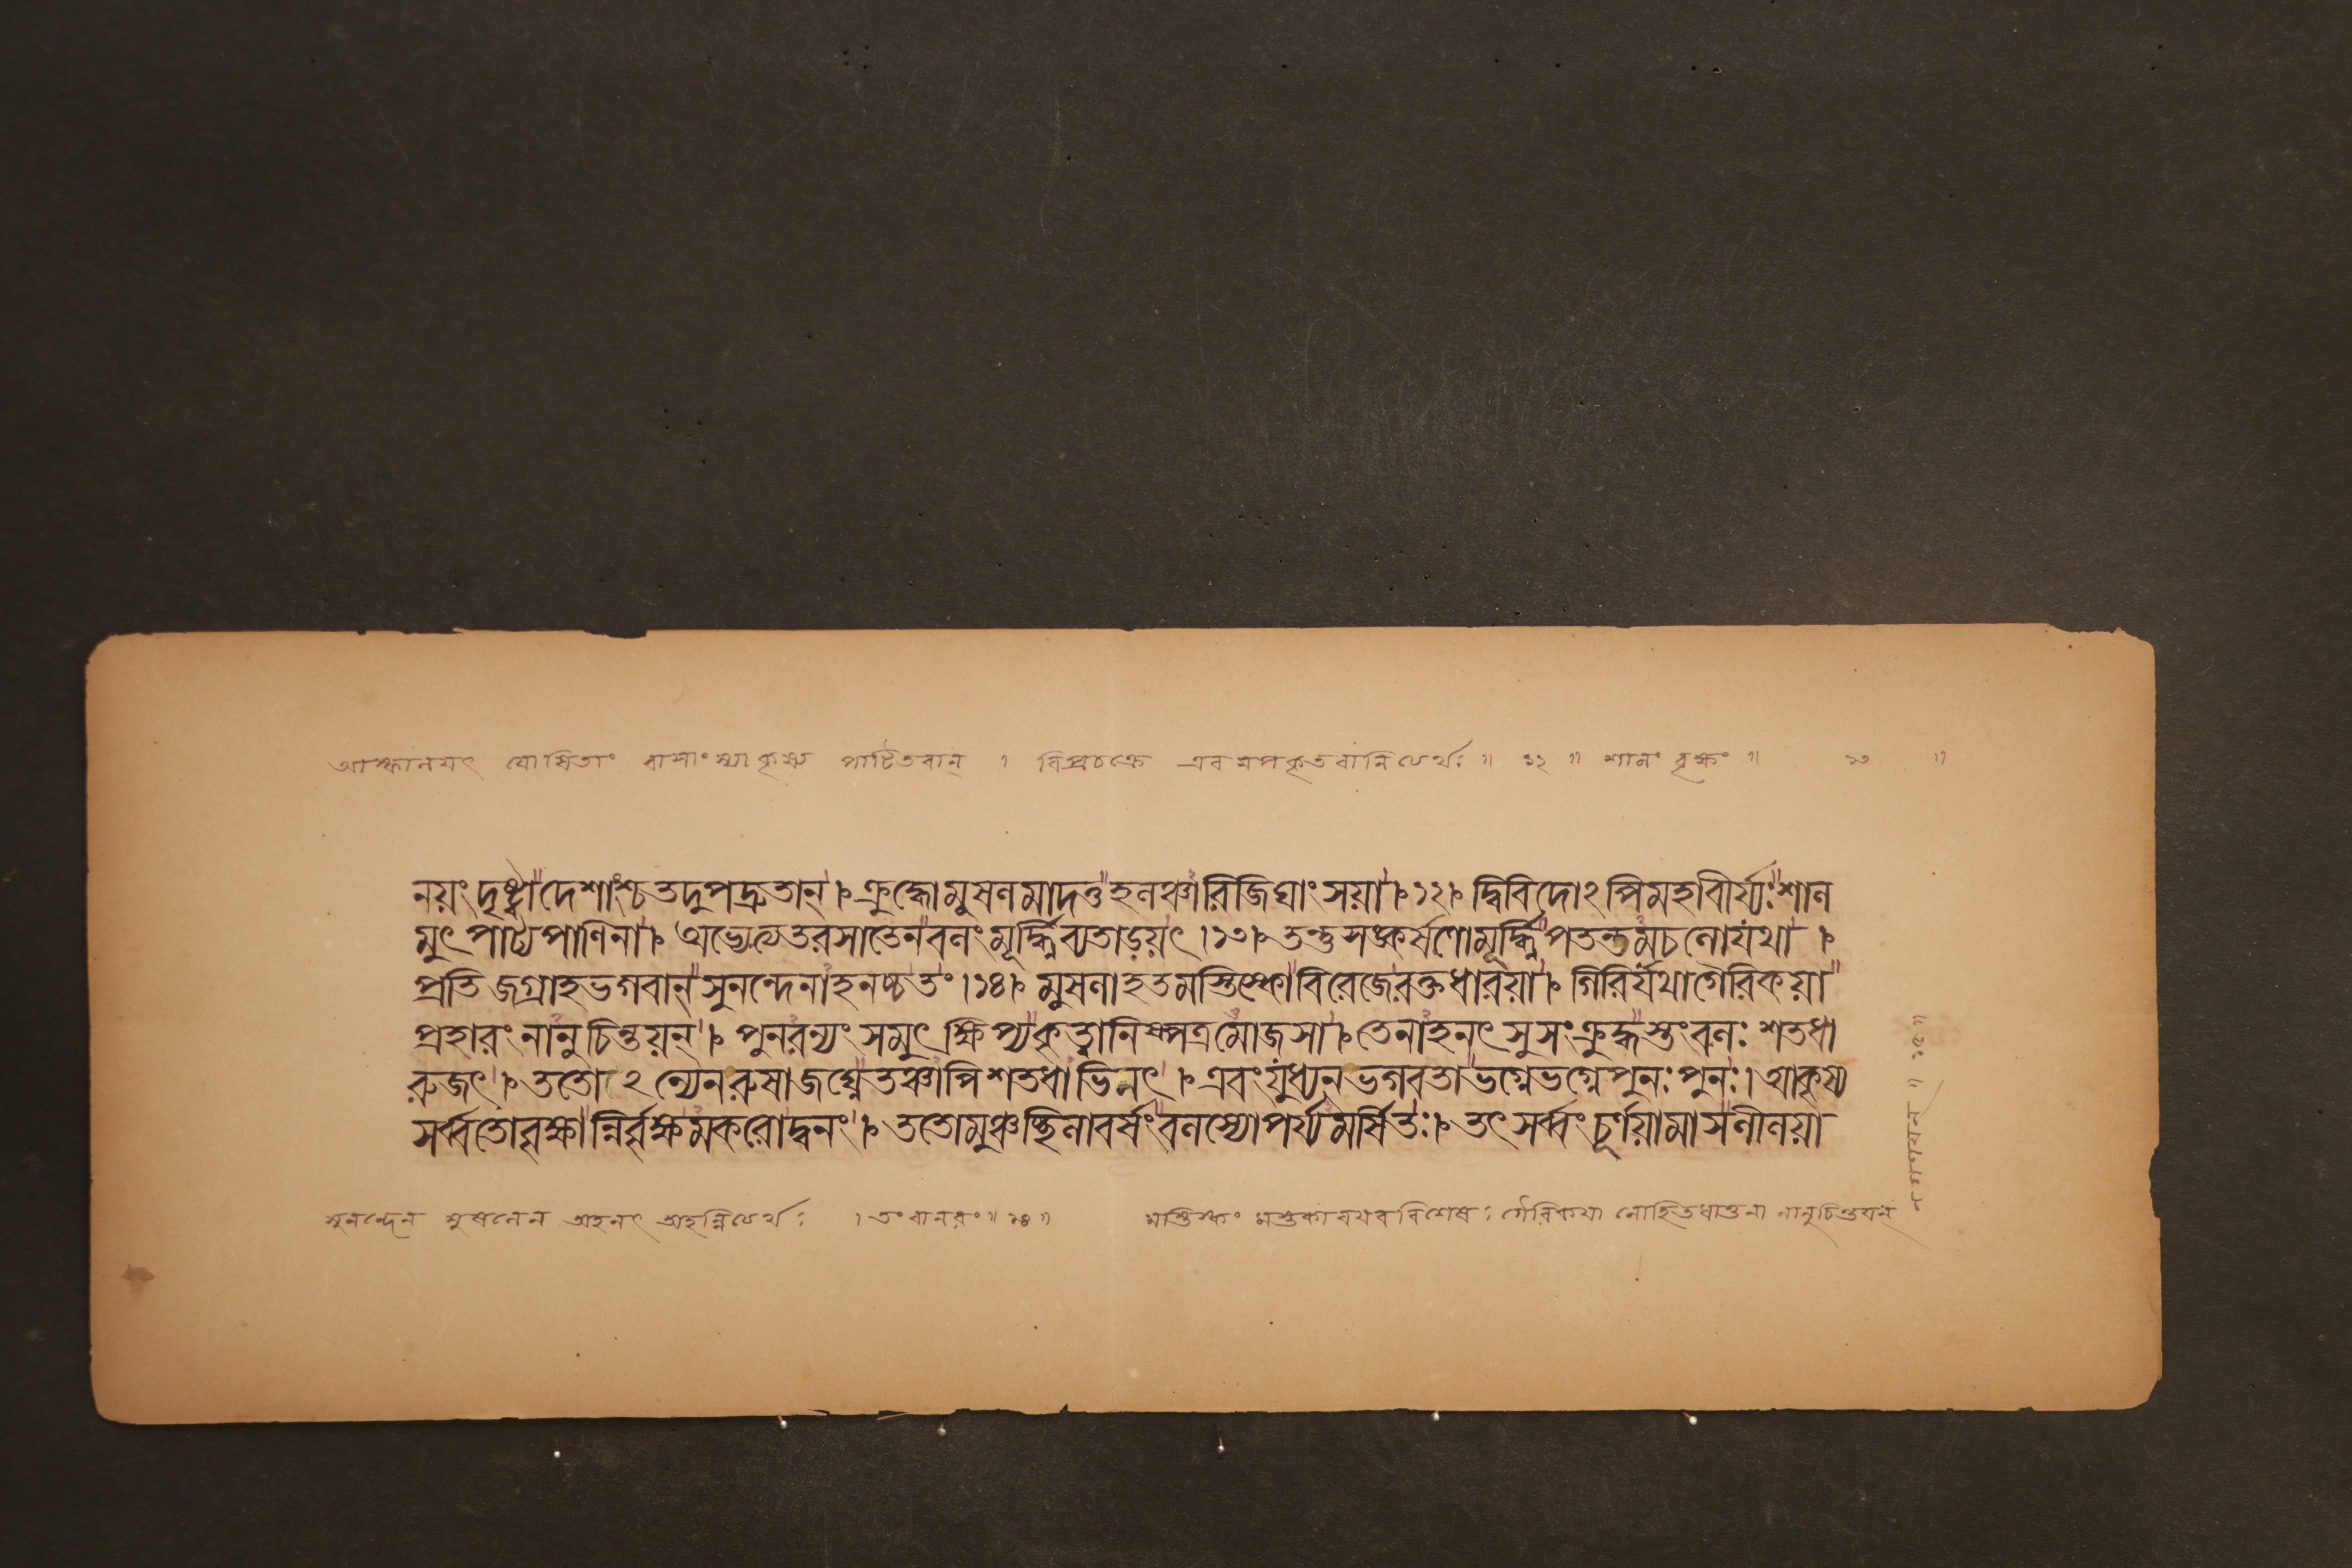 আস্ফালয়ৎ যোষিতাং বাসাংস্যাকৃষ্য পাটিতবান্ । বিপ্রচক্রে এবমপকৃতবানিত্যর্থঃ ॥ ১২ ॥ শালং বৃক্ষং ॥ ১৩ ॥
নয়ং দৃষ্ট্বা দেশাংশ্চ তদুপদ্রুতান্ । ক্রুদ্ধো মুষলমাদত্ত হলঞ্চারিজিঘাংসয়া । ১২ । দ্বিবিদোঽপি মহাবীর্য্যঃ শাল
মুৎপাট্য পাণিনা । অভ্যেত্য তরসা তেন বলং মূর্দ্ধ্নি ব্যতাড়য়ৎ । ১৩ । তন্তু সঙ্কর্ষণো মূর্দ্ধ্নি পতন্তমচলো যথা ।
প্রতিজগ্রাহ ভগবান্ সুনন্দেনাহনচ্চ তং । ১৪ । মুষলাহতমস্তিষ্কো বিরেজে রক্তধারয়া । গিরির্যথা গৈরিকয়া
প্রহারং নানুচিন্তয়ন্ । পুনরন্যং সমুৎক্ষিপ্য কৃত্বা নিষ্পত্রমোজসা । তেনাহনৎ সুসংক্রুদ্ধস্তং বলঃ শতধা
রুজৎ । ততোঽন্যেন রুষা জঘ্নে তঞ্চাপি শতধাভিনৎ । এবং যুধ্যন্ ভগবতা ভগ্নে ভগ্নে পুনঃ পুনঃ । আকৃষ্য
সর্ব্বতো বৃক্ষান্নির্বৃক্ষমকরোদ্বনং । ততো মুঞ্চচ্ছিলাবর্ষং বলস্যোপর্য্যমর্ষিতঃ । তৎ সর্ব্বং চূর্ণয়ামাস লীলয়া
সুনন্দেন মুষলেন অহনৎ অহন্নিত্যর্থঃ । তং বানরং ॥ ১৪ ॥ মস্তিষ্কং মস্তকাবয়ববিশেষঃ গৈরিকয়া লোহিতধাতুনা নানুচিন্তয়ন্
॥ ১৫ ॥